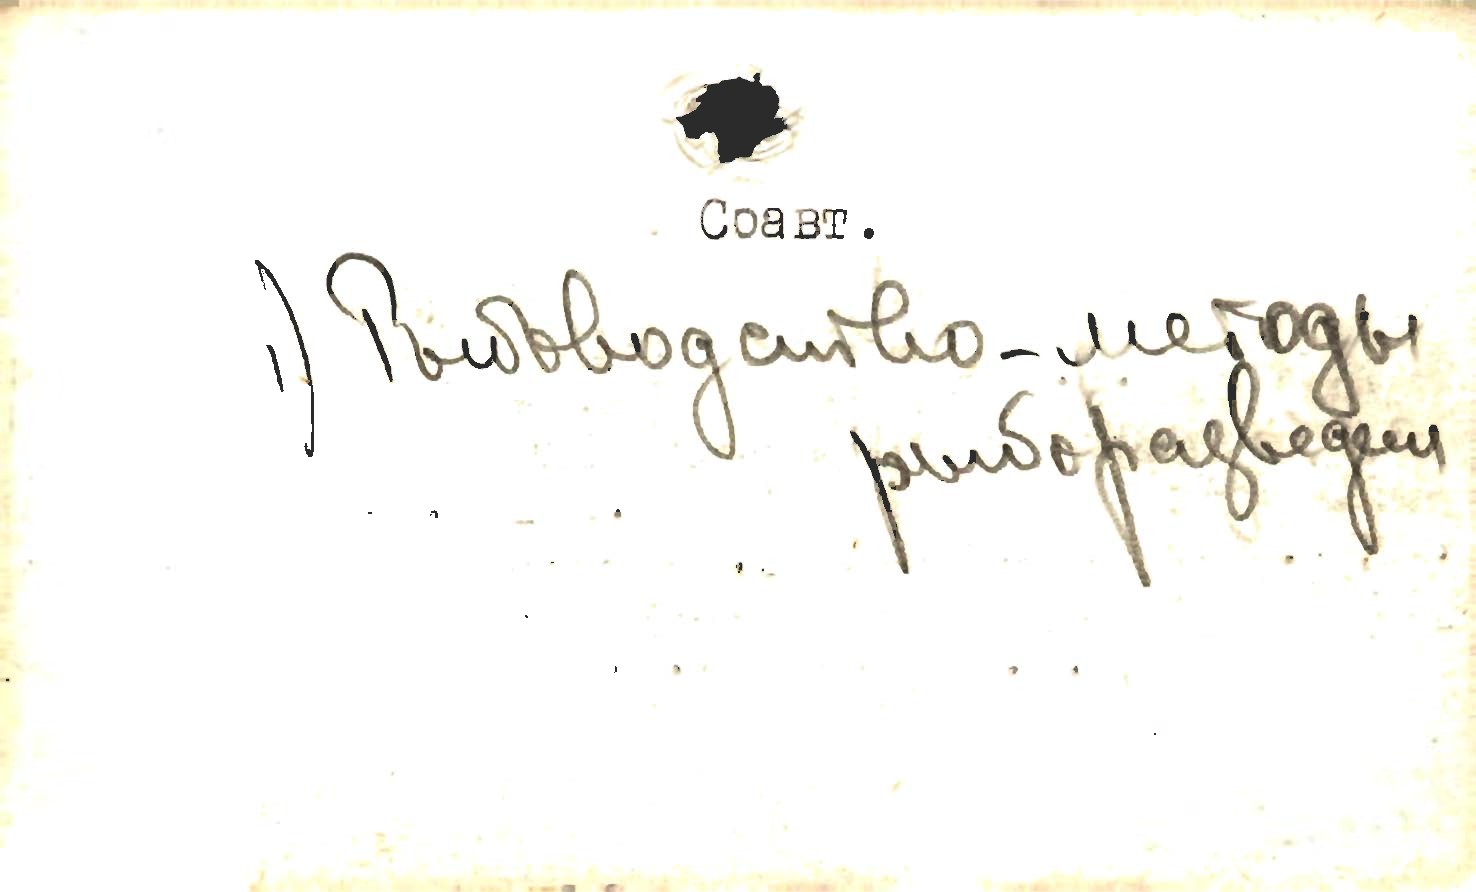 Соавт.
1) Рыбоводство - методы
рыборазведен